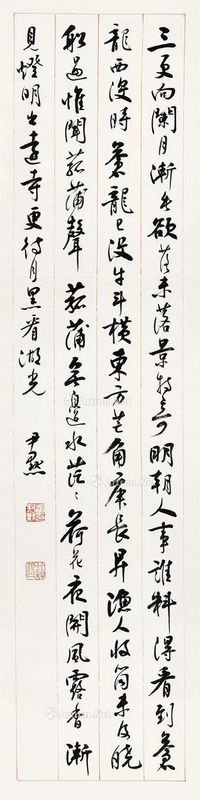 三更向闌月漸垂欲落未落景特奇明朝人事誰料得看到蒼
龍西沒時蒼龍已沒牛斗橫東方芒角庚長昇漁人收筒未及曉
船過惟聞菰蒲聲菰蒲無邊水茫〻荷花夜開風露香漸
見燈明出遠寺更待月黑看湖光
尹默